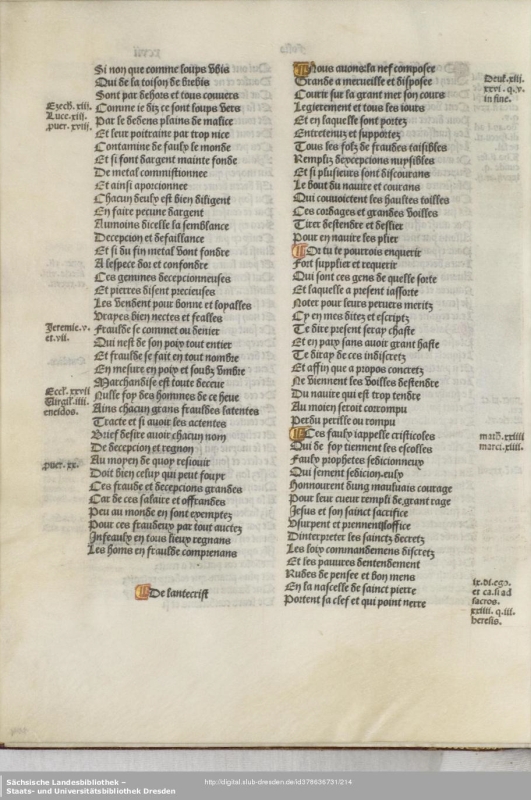 Si non que comme loups vbis
Qui de la toison de brebis
Sont par dehors et tous couuers
Comme ie diz ce sont loups vers
Par le dedens plains de malice
Et leur poitraine par trop nice
Contamine de faulx le monde
Et si font dargent mainte fonde
De metal commistionnee
Et ainsi aporcionnee
Chacun deulx est bien diligent
En faire pecune dargent
Aumoins dicelle la semblance
Decepcion et defaillance
Et si du fin metal vont fondre
A lespece dor et confondre
Ces gemmes decepcionneuses
Et pierres disent precieuses
Les vendent pour bonne et lopalles
Vrayes bien nectes et fealles
Fraulde se commet ou denier
Qui nest de son poix tout entier
Et fraulde se fait en tout nombre
En mesure en poix et soubz vmbre
Marchandise est toute deceue
Nulle foy des hommes de ce heue
Ains chacun grans frauldes latentes
Tracte et si auoir les actentes
Brief desire auoir chacun nom
De decepcion et regnon
Au moyen de quoy resiouir
Doit bien celuy qui peut fouyr
Ces fraude et decepcions grandes
Car de ces salaire et offrandes
Peu au monde en sont exemptez
Pour ces fraudeux par tout auctez
Infeaulx en tous lieux regnans
Les homs en fraulde comprenans
De lantecrist
Ezech. xiij.
Luce. xiij.
puer. xviij.
Jeremie. v.
et. vii.
Eccl. xxvii
Virgil. iiij.
eneidos.
puer. xx.
Nous auons la nef composee
Grande a merueille et disposee
Courir sur la grant mer son cours
Legierement et tous les iours
Et en laquelle sont portez
Entretenuz et supportez
Tous les folz de fraudes taisibles
Rempliz dexcepcions nuysibles
Et si plusieurs sont discourans
Le bout du nauire et courans
Qui couuoictent les haultes toilles
Ces cordages et grandes voilles
Tirer destendre et deslier
Pour en nauire les plier
Or tu te pourrois enquerir
Fort supplier et requerir
Qui sont ces gens de quelle sorte
Et laquelle a present iassorte
Noter pour leurs peruers meritz
Cy en mes ditez et escriptz
Te dire present seray chaste
Et en paix sans auoir grant haste
Te diray de ces indiscretz
Et affin que a propos concretz
Ne viennent les voilles destendre
Du nauire qui est trop tendre
Au moien seroit corrompu
Perdu perille ou rompu
Ces faulx iappelle cristicoles
Qui de foy tiennent les escolles
Faulx prophetes sedicionneux
Qui sement sedicion eulx
Honnourent dung mauluais courage
Pour leur cueur rempli de grant rage
Jesus et son sainct sacrifice
Vsurpent et prennent loffice
Dinterpreter les sainctz decretz
Les loix commandemens discretz
Et les pauures dentendement
Rudes de pensee et don mens
En la nascelle de sainct pierre
Portent sa clef et qui point nerre
Deut. xiij.
xxvi. q. v.
in fine.
math. xxiiij
marci. xiiij.
ix. di. ego.
et ca. si ad
sacros.
xxiiij. q. iij.
heresis.
Sächsische Landesbibliothek –
Staats- und Universitätsbibliothek Dresden
http://digital.slub-dresden.de/id378636731/214